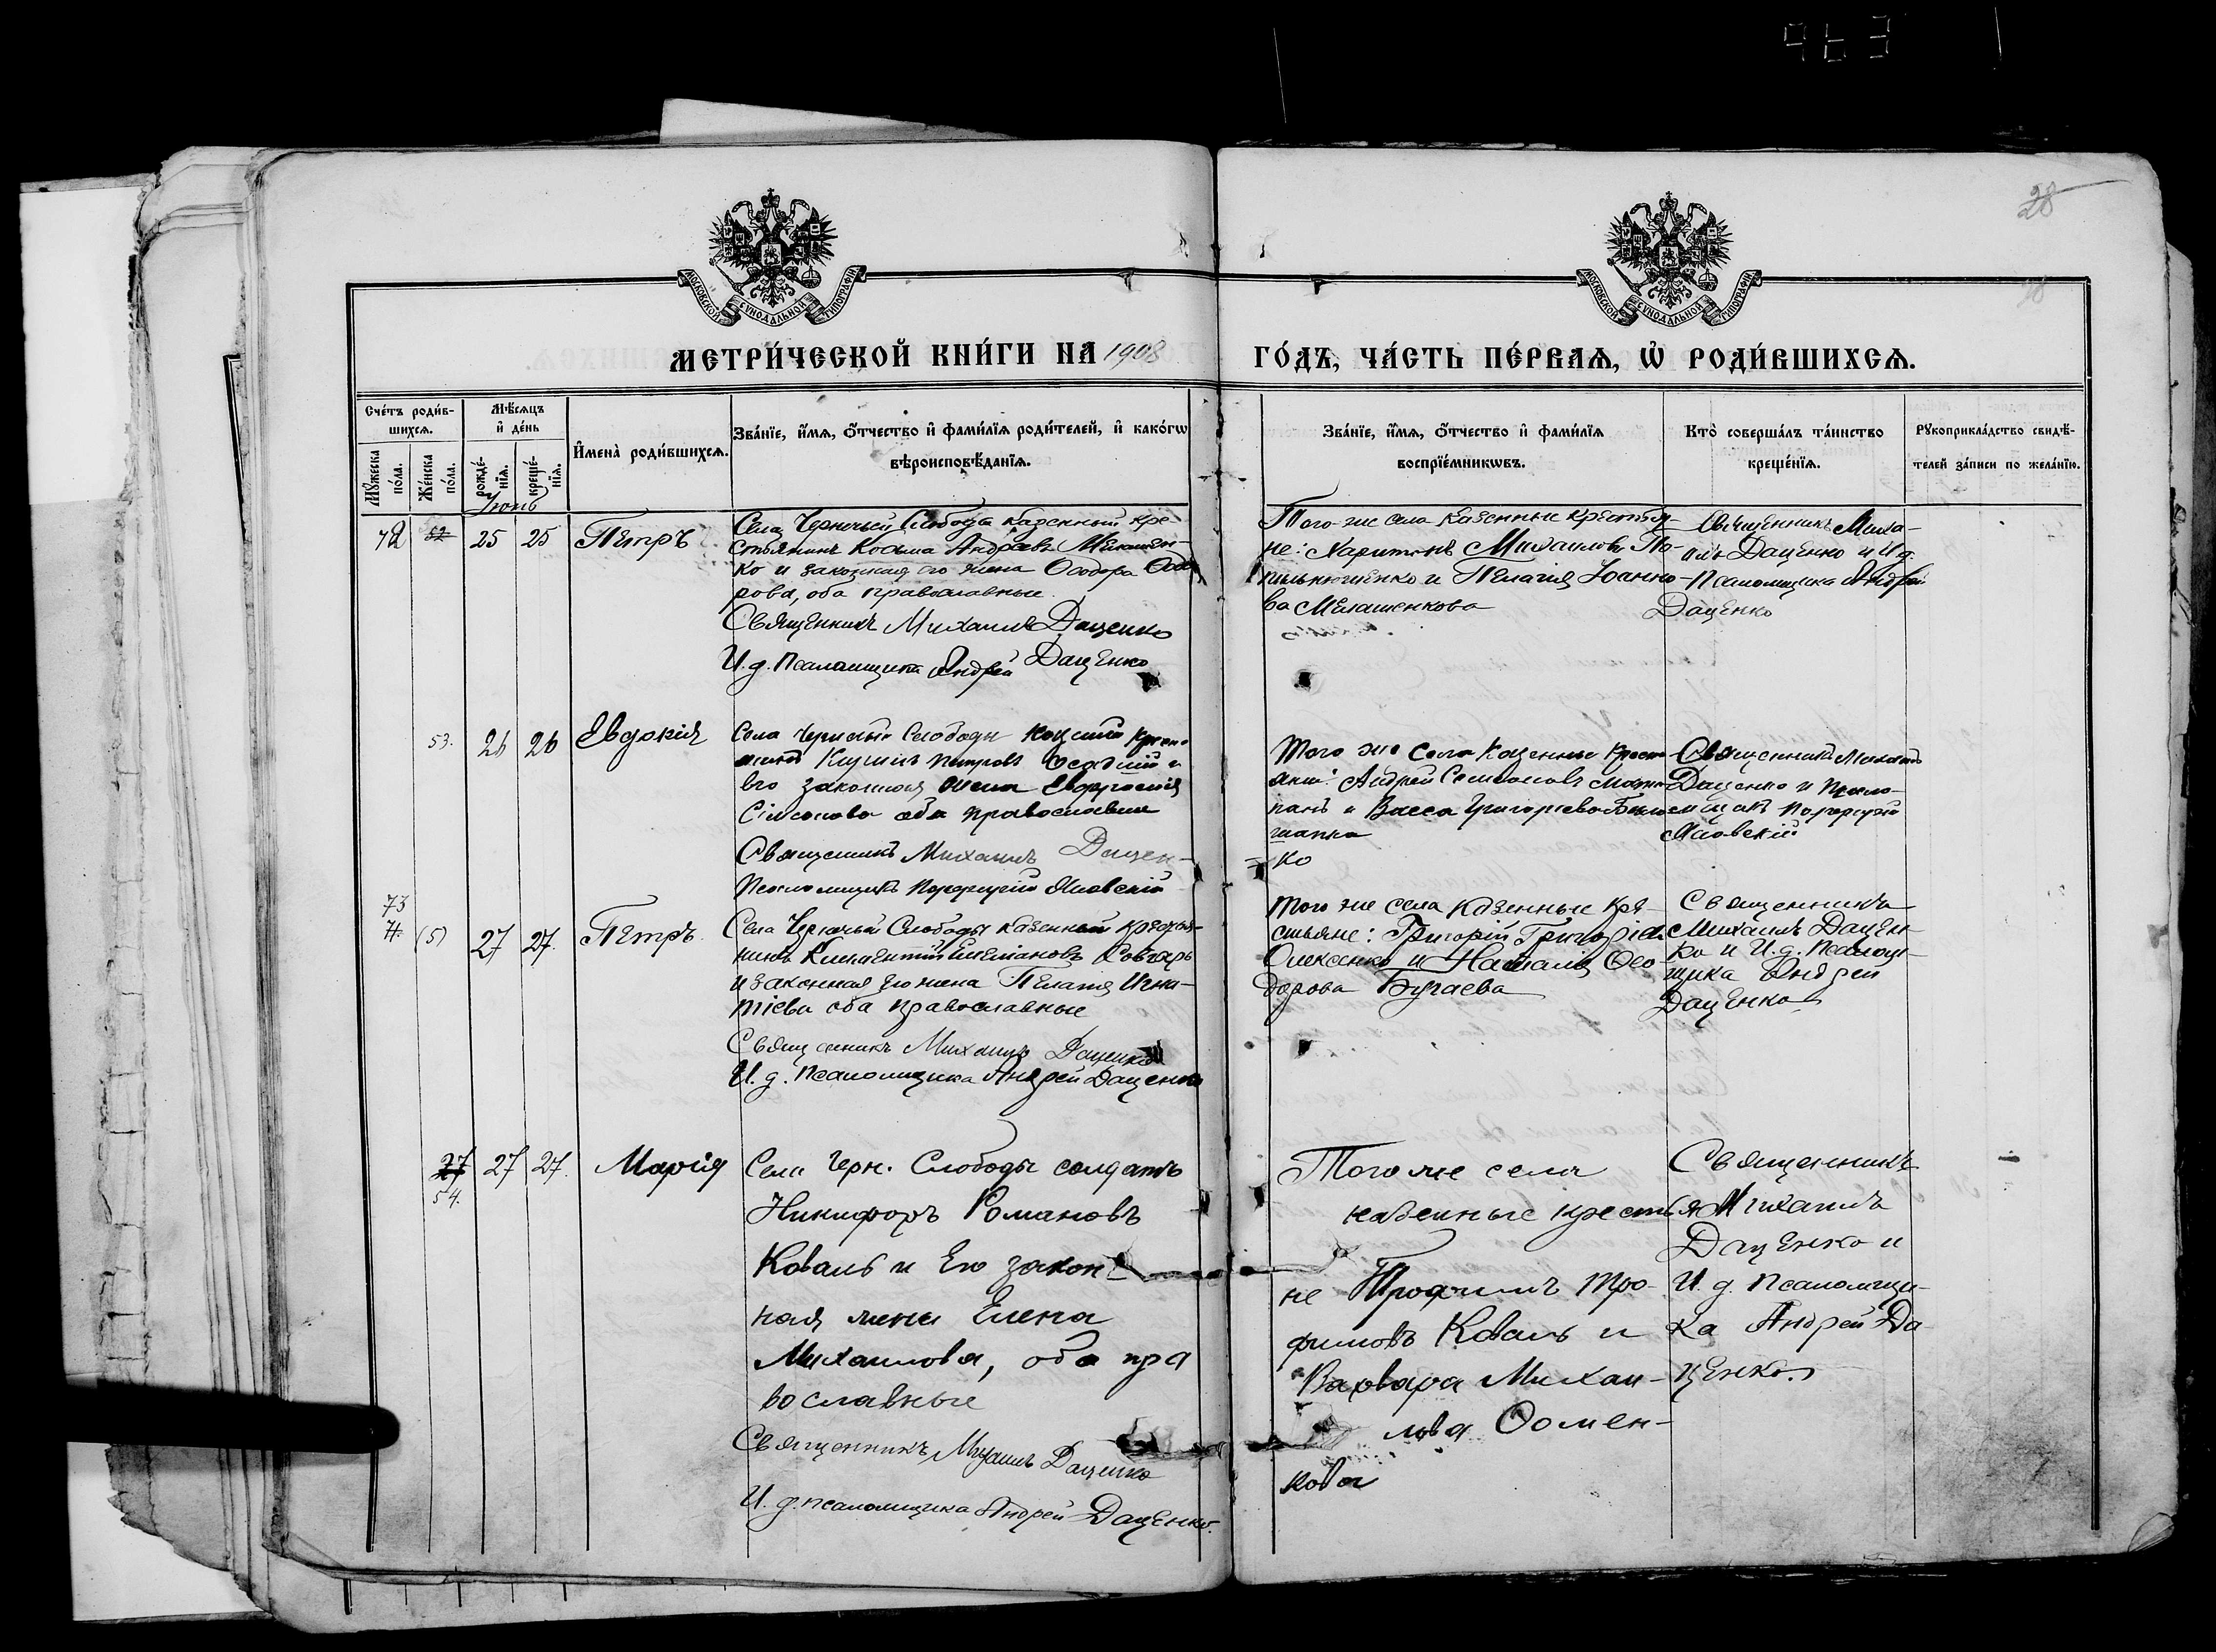 28
МОСКОВСКОЙ СѴНОДАЛЬНОЙ ТИПОГРАФІИ
МОСКОВСКОЙ СѴНОДАЛЬНОЙ ТИПОГРАФІИ
МЕТРИ́ЧЕСКОЙ КНИ́ГИ НА 1908 ГО́ДЪ, ЧА́СТЬ ПЕ́РВАѦ, Ѡ РОДИ́ВШИХСѦ.
Сче́тъ роди́в-
шихсѧ.
Мѣ́сѧцъ
и҆ де́нь
И҆мена̀ роди́вшихсѧ.
Зва́нїе, и҆́мѧ, ѻ҆́тчество и҆ фами́лїѧ роди́телей, и҆ како́гѡ
вѣроисповѣ́данїѧ.
Мꙋ́жеска по́ла.
Же́нска по́ла.
рожде́-нїѧ.
креще́-нїѧ.
Зва́нїе, и҆́мѧ, ѻ҆́тчество и҆ фами́лїѧ
воспрїе́мникѡвъ.
Кто̀ соверша́лъ та́инство
креще́нїѧ.
Рꙋкоприкла́дство свидѣ́-
телей за́писи по жела́нїю.
Іюнь
72 52 25 25 Петръ
Села Чернечьей Слободы казенный кре-
стьянинъ Косьма Андреевъ Мелашен-
ко и законная его жена Ѳеодора Ѳеодо
рова, оба православные.
Священникъ Михаилъ Даценко
И. д. Псаломщика Андрей Даценко
Того же села казенные крестья-
не: Харитонъ Михаиловъ По-
и Пелагія Іоанно-
ва Мелашенкова
Священникъ Миха-
илъ Даценко и И.д.
Псаломщика Андрей
Даценко
53. 26 26 Евдокія
Села Слободы
Петровъ и
его законная жена Евфросинія
оба православные
Священникъ Михаилъ Дацен-
ко
Псаломщикъ Порфирій Яновскій
Того же села казенные крест-
яни: Андрей Семеоновъ
и Васса Григорьева
Священникъ Михаилъ
Даценко и Псало-
мщикъ Порфирій
Яновскій
73
(5) 27 27. Петръ.
Села Чернечьей Слободы казенный крестья-
нинъ Климентій Емеліановъ Ковтарь
и законная его жена Пелагія Игна-
тіева оба православные
Священникъ Михаилъ Даценко
И. д. Псаломщика Андрей Даценко
Того же села казенные кре-
стьяне: Григорій Григоріев
Олексенко и Наталія Ѳео-
дорова Бугаева
Священникъ
Михаилъ Дацен-
ко и И. д. Псаломщ-
щика Андрей
Даценко
27 27 27. Марія
54.
Села Черн. Слободы солдатъ
Никифоръ Романовъ
Коваль и его закон
ная жена Елена
Михаилова, оба пра
вославные
Священникъ Михаилъ Даценко
И. д. псаломщика Андрей Даценко.
Того же села
казенные крестья
не Трофимъ Тро-
фимовъ Коваль и
Варвара Михаи-
лова Ѳомен-
кова
Священникъ
Михаилъ
Даценко и
И. д. Псаломщи-
ка Андрей Да
ценко.